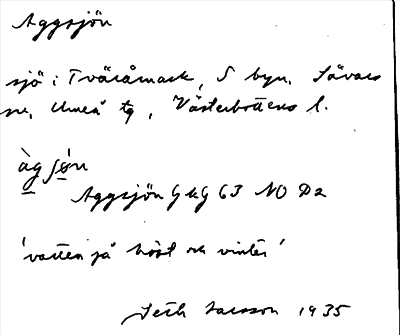 Aggsjön
sjö i Tväråmark, S byn, Sävars
sn, Umeå tg, Västerbottens l.
àg ʃø̀n
Aggsjön GkG 63 NO Da
'vatten på höst och vinter'
Seth Larsson 1935